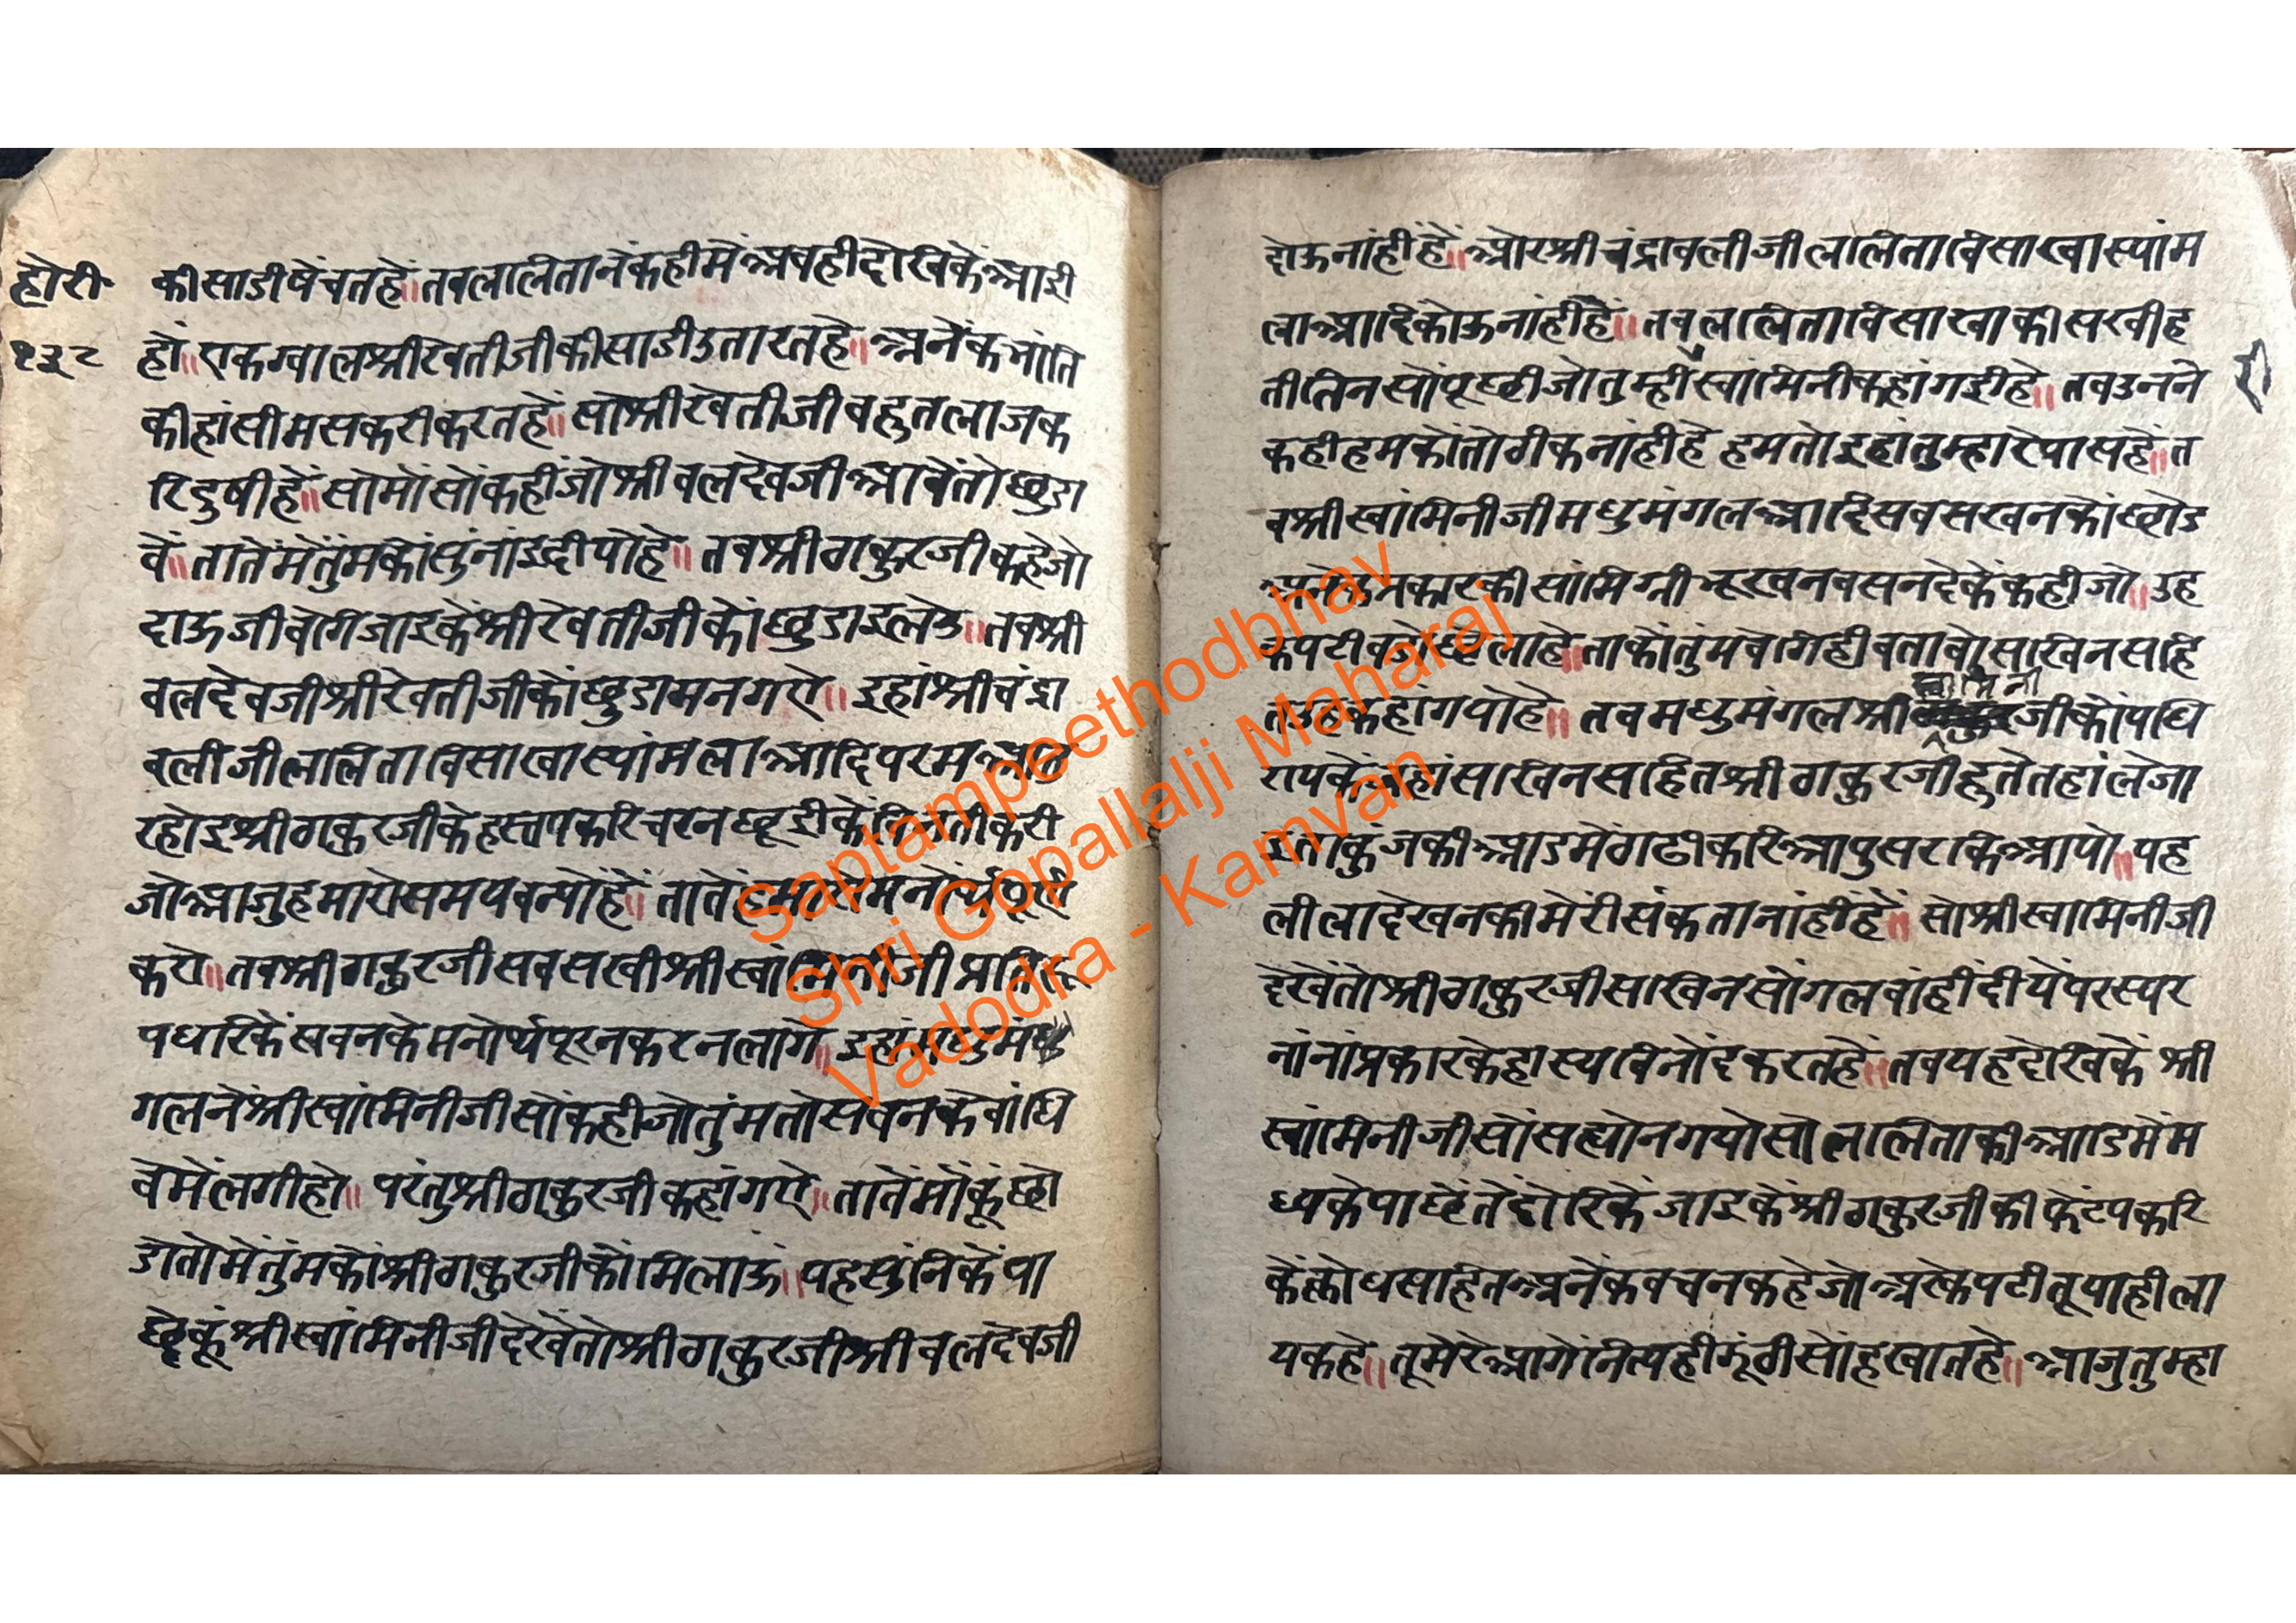 होरी
१३८
की साडी षेंचत हें ॥ तब ललिता नें कही में अब ही देखि कें आई
हों ॥ एक ग्वाल श्री रेवती जी की साडी उतारत हे ॥ अनेंक भांति
की हांसी मसकरी करत हें ॥ सो श्री रेवती जी बहुत लाज क
रि दुषी हें ॥ सो मों सों कहीं जो श्री बलदेव जी आवें तो छुडा
वें ॥ तातें में तुंम कों सुंनांइ दीयो हे ॥ तब श्री ठाकुर जी कहे जो
दाऊ जी बेगि जाइ कें श्री रेवती जी कों छुडाइ लेउ ॥ तब श्री
बलदेव जी श्री रेवती जी कों छुडामन गऐ ॥ इहां श्री चंद्रा
वली जी ललिता विसाखा स्यांमला आदि परम
रहोइ श्री ठाकुर जी के हस्त पकरि चरन छूई कें विनती करी
जो आजु हमारो समय बन्यो हें ॥ तातें हमारो मनोर्थ पूरन
करो ॥ तब श्री ठाकुर जी सब सखी श्री स्वांमिनी जी प्रति
पधारि कें सबन के मनोर्थ पूरन करन लागे ॥ इहां मधुमं
गल नें श्री स्वांमिनी जी सों कही जो तुंम तो सबन के बांधि
वे में लगी हो ॥ परंतु श्री ठाकुर जी कहां गऐ ॥ तातें मोंकूं छो
डो तो में तुंम कों श्री ठाकुर जी कों मिलाऊं ॥ यह सुंनि कें पा
छें कूं श्री स्वांमिनी जी देखें तो श्री ठाकुर जी श्री बलदेव जी
दोऊ नांही हें ॥ ओर श्री चंद्रावली जी ललिता विसाखा स्यांम
ला आदि कोऊ नांही हें ॥ तब ललिता विसाखा की सखी ह
ती तिन सों पूछी जो तुम्ही स्वांमिनी कहां गई हे ॥ तब उनने
री
कही हम कों तो ठीक नांही हे हम तो इहां तुम्हारे पास हें ॥ त
ब श्री स्वांमिनी जी मधुमंगल आदि सब सखन कों छोड
अनेक प्रकार की सांमिग्री भूखन बसन दे कें कही जो ॥ उह
कपटी बडो छेला हे ॥ ताकों तुंम बेगि ही बतावो सखिन सहि
त उह कहां गयो हे ॥ तब मधुमंगल श्री स्वामिनी जी कों पधि
राय कें जहां सखिन सहित श्री ठाकुर जी हुते तहां ले जा
इ ता कुंज की आड में ठाढी करि आपु सरकि आयो ॥ यह
लीला देखन की मेरी संकता नांहीं हें ॥ सो श्री स्वामिनी जी
देखें तो श्री ठाकुर जी सखिन सों गलबांही दीयें परस्पर
नांनां प्रकार के हास्य विनोंद करत हें ॥ तब यह देखि कें श्री
स्वांमिनी जी सों सह्यो न गयो सो ललिता की आड में म
ध्य के पाछें तें दोरि कें जाइ कें श्री ठाकुर जी की फेंट पकरि
कें क्रोध सहित अनेंक बचन कहे जो अरे कपटी तू याही ला
यक हे ॥ तू मेरे आगें नित्य ही झूंठी सोंह खात हे ॥ आजु तुम्हा
Saptampeethodbhav
Shri Gopallalji Maharaj
Vadodra - Kamvan